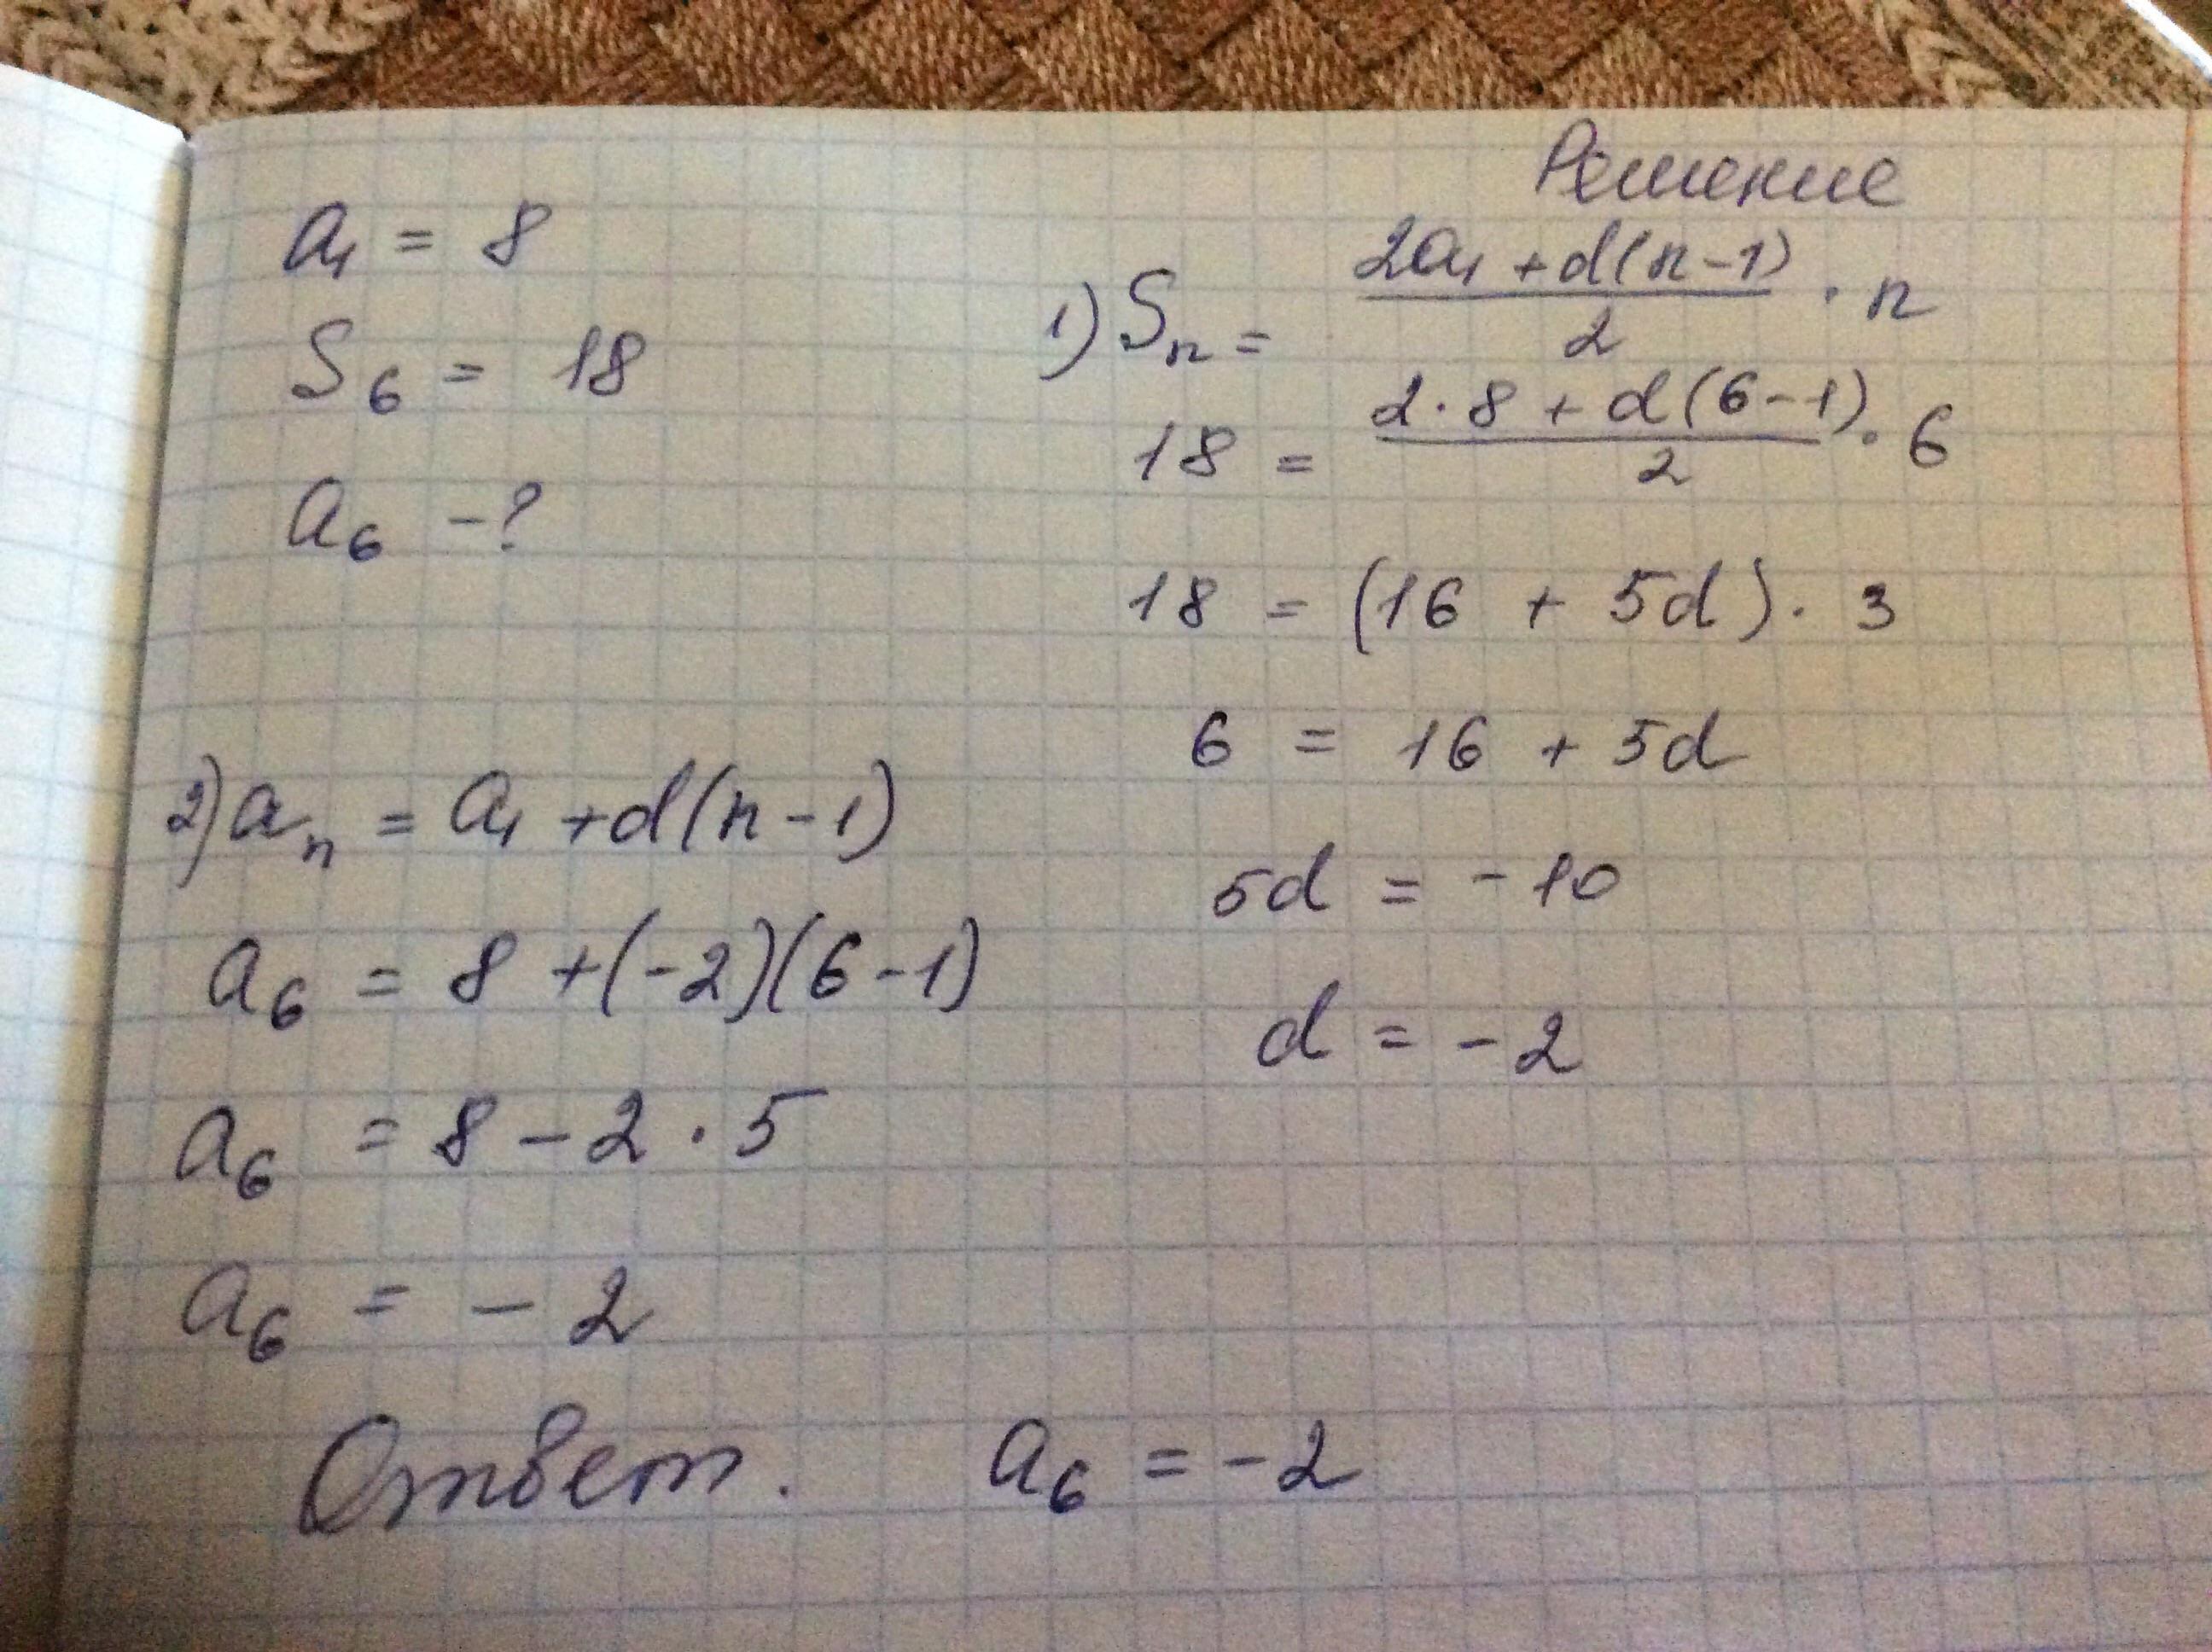 a₁ = 8
S₆ = 18
a₆ - ?
Решение
1) Sₙ = (2a₁ + d(n-1))/2 · n
18 = (2·8 + d(6-1))/2 · 6
18 = (16 + 5d) · 3
6 = 16 + 5d
5d = -10
d = -2
2) aₙ = a₁ + d(n-1)
a₆ = 8 + (-2)(6-1)
a₆ = 8 - 2 · 5
a₆ = - 2
Ответ. a₆ = -2